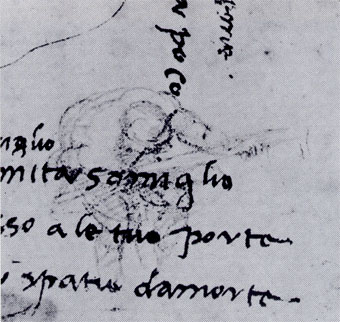 poco
miglio
mita samiglio
so a le tuo porte
spatio damorte